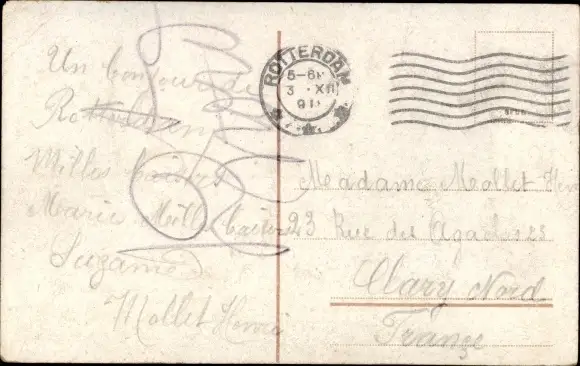 Un bonjour de
Rotterdam
Milles baisers
Marie Mille baisers
Suzanne
Mollet Henri
ROTTERDAM
5-6
3 XII
Madame Mollet Henri
23 Rue des
Clary Nord
France